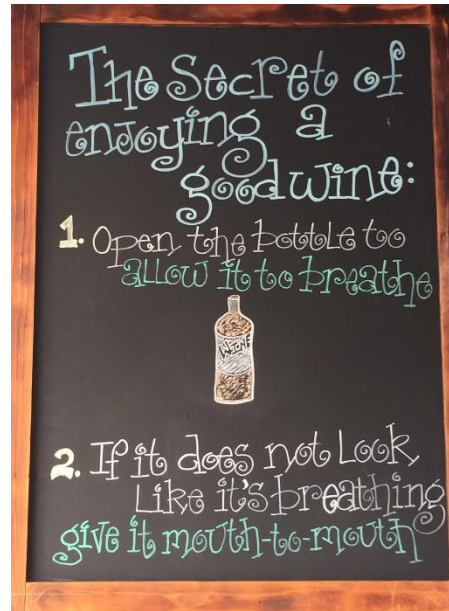 The Secret of
enjoying a
good wine:
1. Open the bottle to
allow it to breathe
WINE
2. If it does not Look
Like it's breathing
give it mouth-to-mouth